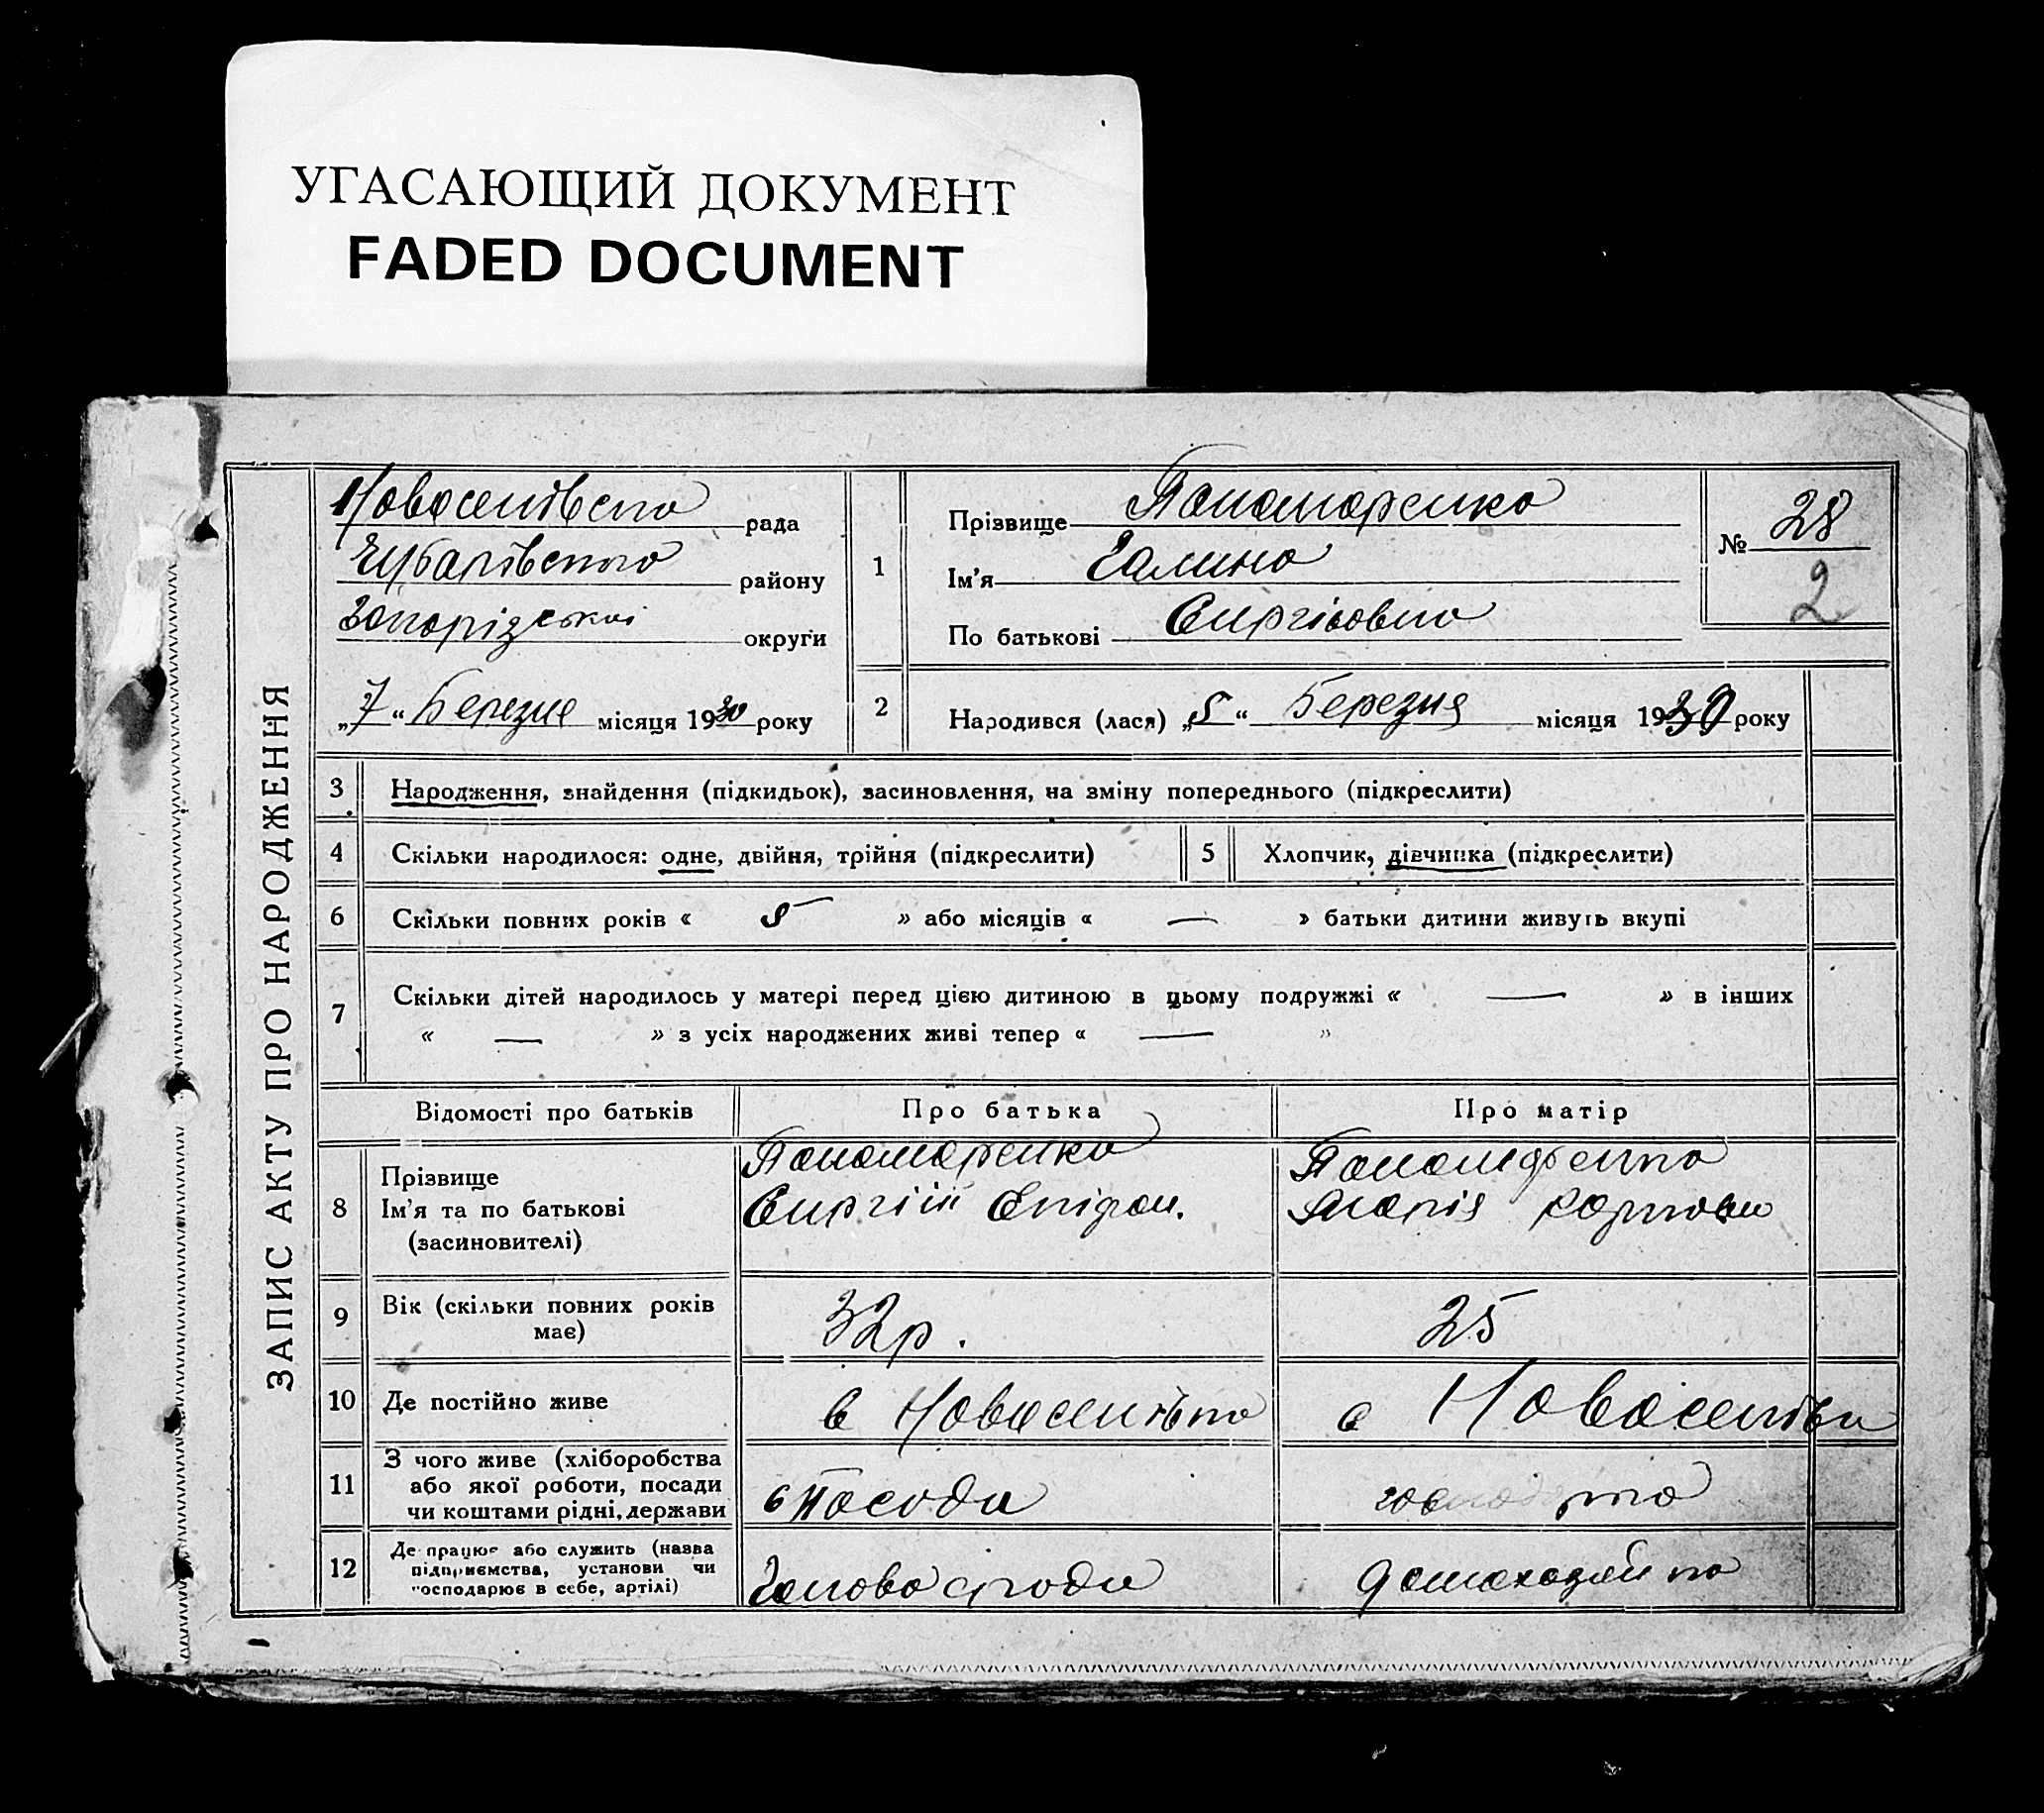 УГАСАЮЩИЙ ДОКУМЕНТ
FADED DOCUMENT
ЗАПИС АКТУ ПРО НАРОДЖЕННЯ
Новоселівська рада
Чубарівського району
Запорізської округи
„7“ Березня місяця 1930 року
1
Прізвище Пономаренко
Ім'я Галина
По батькові Сиргієвна
№ 28
2
2
Народився (лася) „5“ Березня місяця 1930 року
3 Народження, знайдення (підкидьок), засиновлення, на зміну попереднього (підкреслити)
4 Скільки народилося: одне, двійня, трійня (підкреслити)
5 Хлопчик, дівчинка (підкреслити)
6 Скільки повних років « 5 » або місяців « — » батьки дитини живуть вкупі
7 Скільки дітей народилось у матері перед цією дитиною в цьому подружжі « — » в інших
« — » з усіх народжених живі тепер « — »
Відомості про батьків Про батька Про матір
8
Прізвище
Ім'я та по батькові
(засиновителі)
Пономаренко
Сиргій Єпіфан.
Пономаренко
Марія Карповна
9
Вік (скільки повних років
має)
32р.
25
10 Де постійно живе
в Новоселівка
с Новоселівка
11
З чого живе (хліборобства
або якої роботи, посади
чи коштами рідні, держави
в Посоди
12
Де працює або служить (назва
підприємства, установи чи
господарює в себе, артілі)
Голова ради
домохозяйка